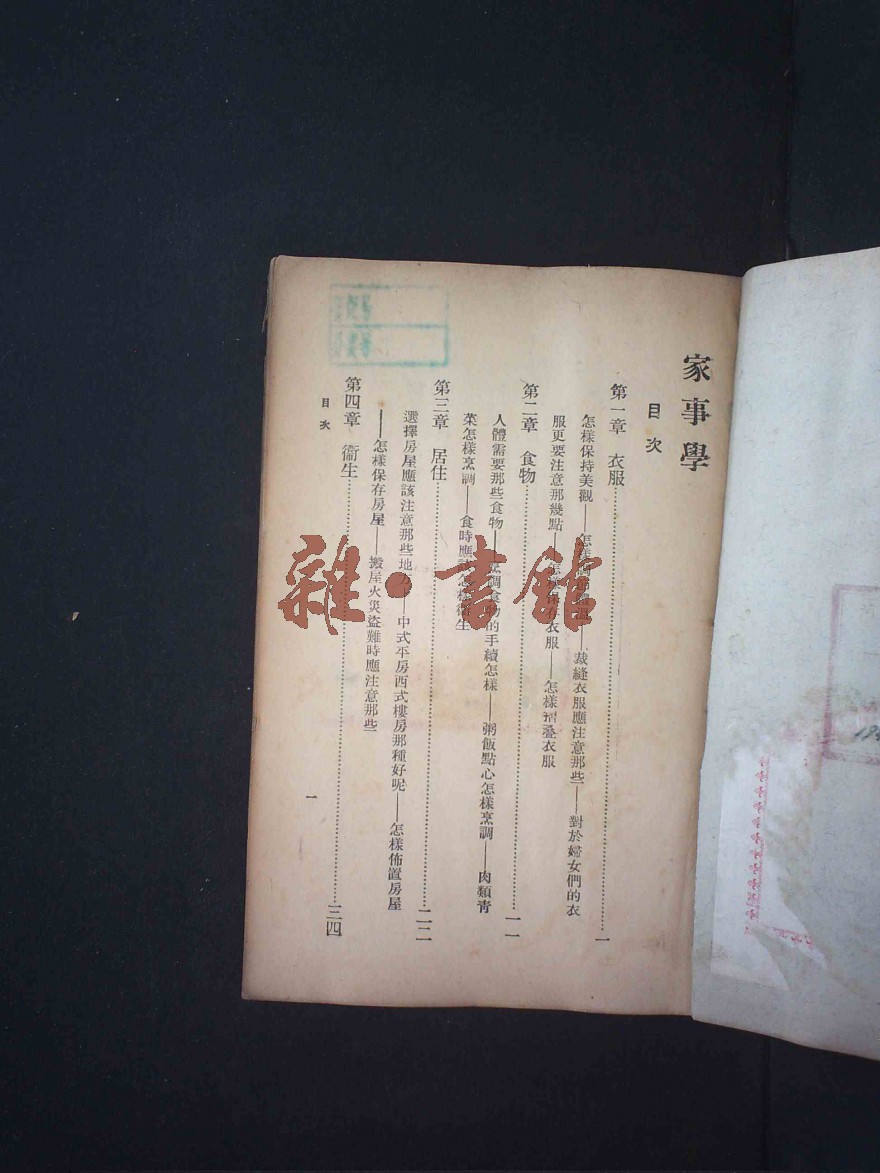 家事學
目次
第一章 衣服……一
怎樣保持美觀——怎樣調節體溫——裁縫衣服應注意那些——對於婦女們的衣
服更要注意那幾點——怎樣保存衣服——怎樣摺疊衣服
第二章 食物……一一
人體需要那些食物——烹調食物的手續怎樣——粥飯點心怎樣烹調——肉類青
菜怎樣烹調——食時應該怎樣衞生
第三章 居住……二二
選擇房屋應該注意那些地方——中式平房西式樓房那種好呢——怎樣佈置房屋
——怎樣保存房屋——搬屋火災盜難時應注意那些
第四章 衞生……三四
目次
一
雜·書館